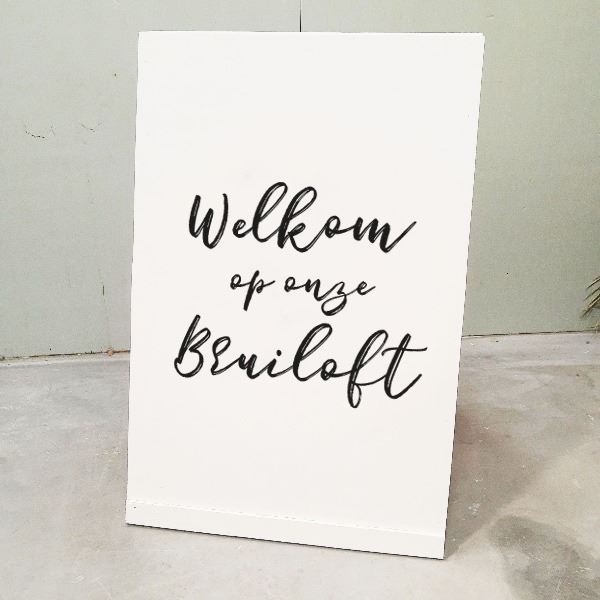 Welkom
op onze
Bruiloft